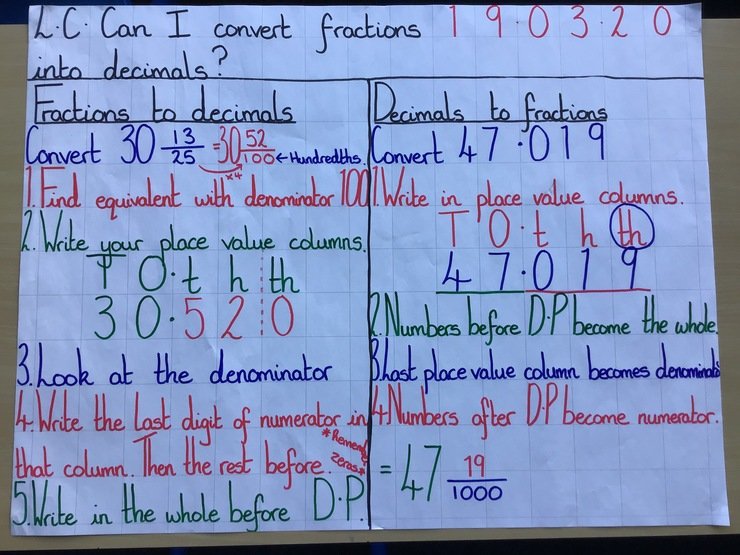 L.C. Can I convert fractions 19.03.20
into decimals?
Fractions to decimals
Convert 30 13/25 = 30 52/100 ← Hundredths.
x4
1. Find equivalent with denominator 100
2. Write your place value columns.
T O . t h th
3 0 . 5 2 0
3. Look at the denominator
4. Write the last digit of numerator in
that column. Then the rest before.
*Remember
zeros*
5. Write in the whole before D.P.
Decimals to fractions
Convert 47.019
1. Write in place value columns.
T O . t h th
4 7 . 0 1 9
2. Numbers before D.P become the whole.
3. Last place value column becomes denominator
4. Numbers after D.P become numerator.
= 47 19/1000